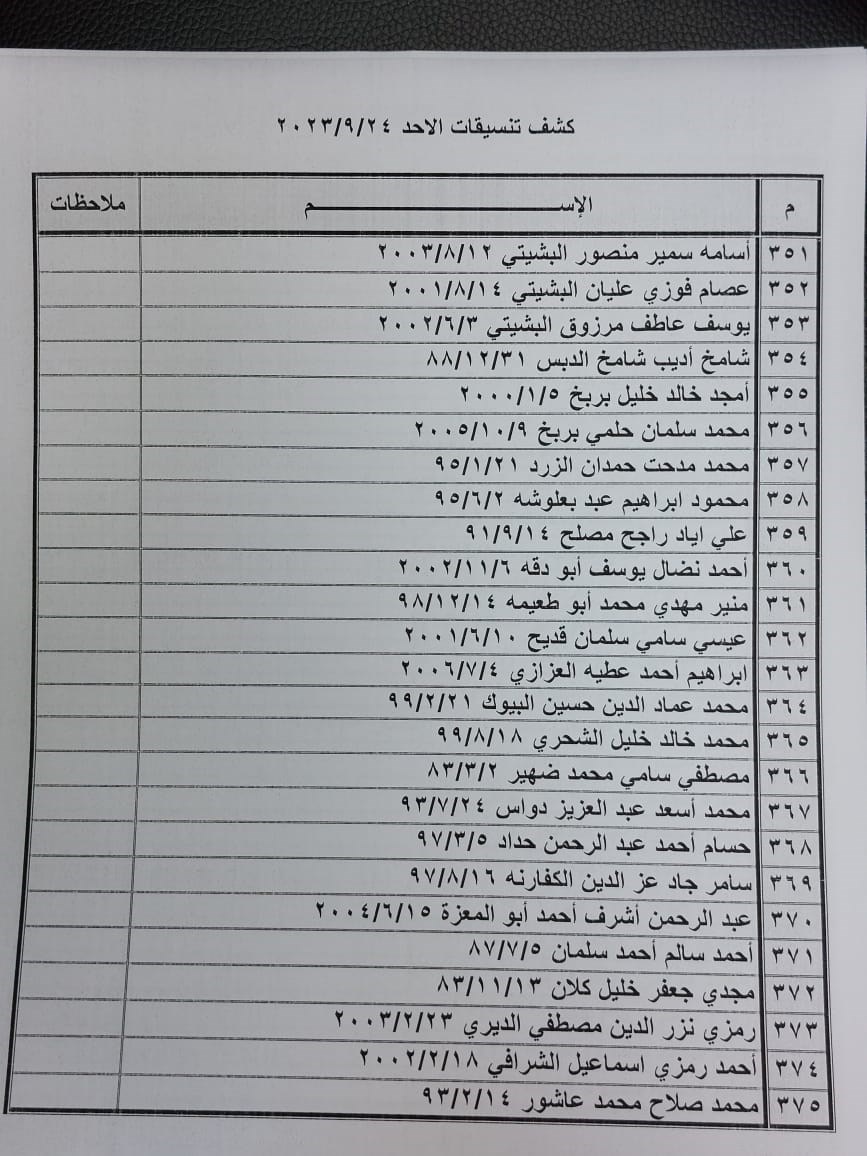 كشف تنسيقات الاحد ٢٠٢٣/٩/٢٤
م الإســـــــــــــــــــــم ملاحظات
٣٥١ أسامه سمير منصور البشيتي ٢٠٠٣/٨/١٢
٣٥٢ عصام فوزي عليان البشيتي ٢٠٠١/٨/١٤
٣٥٣ يوسف عاطف مرزوق البشيتي ٢٠٠٢/٦/٣
٣٥٤ شامخ أديب شامخ الدبس ٨٨/١٢/٣١
٣٥٥ أمجد خالد خليل بربخ ٢٠٠٠/١/٥
٣٥٦ محمد سلمان حلمي بربخ ٢٠٠٥/١٠/٩
٣٥٧ محمد مدحت حمدان الزرد ٩٥/١/٢١
٣٥٨ محمود ابراهيم عبد بعلوشه ٩٥/٦/٢
٣٥٩ علي اياد راجح مصلح ٩١/٩/١٤
٣٦٠ أحمد نضال يوسف أبو دقه ٢٠٠٢/١١/٦
٣٦١ منير مهدي محمد أبو طعيمه ٩٨/١٢/١٤
٣٦٢ عيسي سامي سلمان قديح ٢٠٠١/٦/١٠
٣٦٣ ابراهيم أحمد عطيه العزازي ٢٠٠٦/٧/٤
٣٦٤ محمد عماد الدين حسين البيوك ٩٩/٢/٢١
٣٦٥ محمد خالد خليل الشحري ٩٩/٨/١٨
٣٦٦ مصطفي سامي محمد ضهير ٨٣/٣/٢
٣٦٧ محمد أسعد عبد العزيز دواس ٩٣/٧/٢٤
٣٦٨ حسام أحمد عبد الرحمن حداد ٩٧/٣/٥
٣٦٩ سامر جاد عز الدين الكفارنه ٩٧/٨/١٦
٣٧٠ عبد الرحمن أشرف أحمد أبو المعزة ٢٠٠٤/٦/١٥
٣٧١ أحمد سالم أحمد سلمان ٨٧/٧/٥
٣٧٢ مجدي جعفر خليل كلان ٨٣/١١/١٣
٣٧٣ رمزي نزر الدين مصطفي الديري ٢٠٠٣/٢/٢٣
٣٧٤ أحمد رمزي اسماعيل الشرافي ٢٠٠٢/٢/١٨
٣٧٥ محمد صلاح محمد عاشور ٩٣/٢/١٤